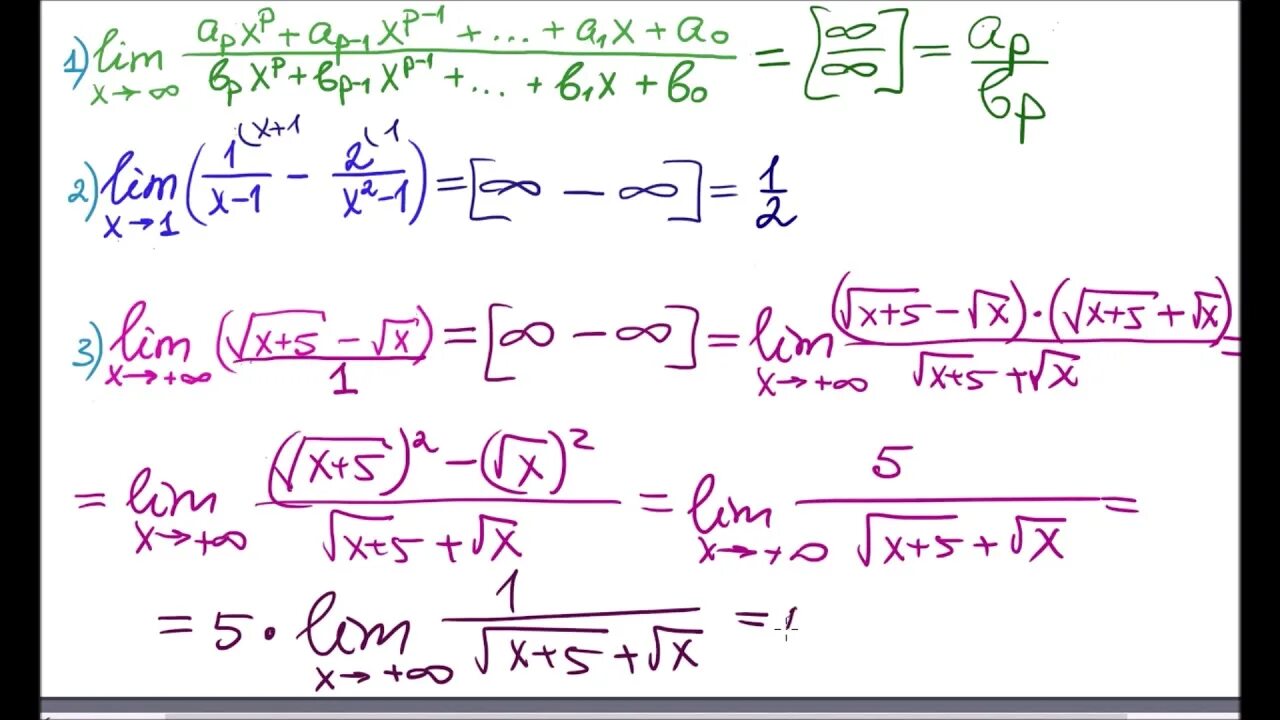 1) lim x→∞ (aₚxᵖ + aₚ₋₁xᵖ⁻¹ + ... + a₁x + a₀)/(вₚxᵖ + вₚ₋₁xᵖ⁻¹ + ... + в₁x + в₀) = [∞/∞] = aₚ/вₚ
2) lim x→1 (1^(x+1/(x-1) - 2^(1/(x²-1)) = [∞ - ∞] = 1/2
3) lim x→+∞ (√(x+5) - √x)/1 = [∞ - ∞] = lim x→+∞ ((√(x+5) - √x)·(√(x+5) + √x))/(√(x+5) + √x) =
= lim x→+∞ ((√(x+5))² - (√x)²)/(√(x+5) + √x) = lim x→+∞ 5/(√(x+5) + √x) =
= 5 · lim x→+∞ 1/(√(x+5) + √x) =